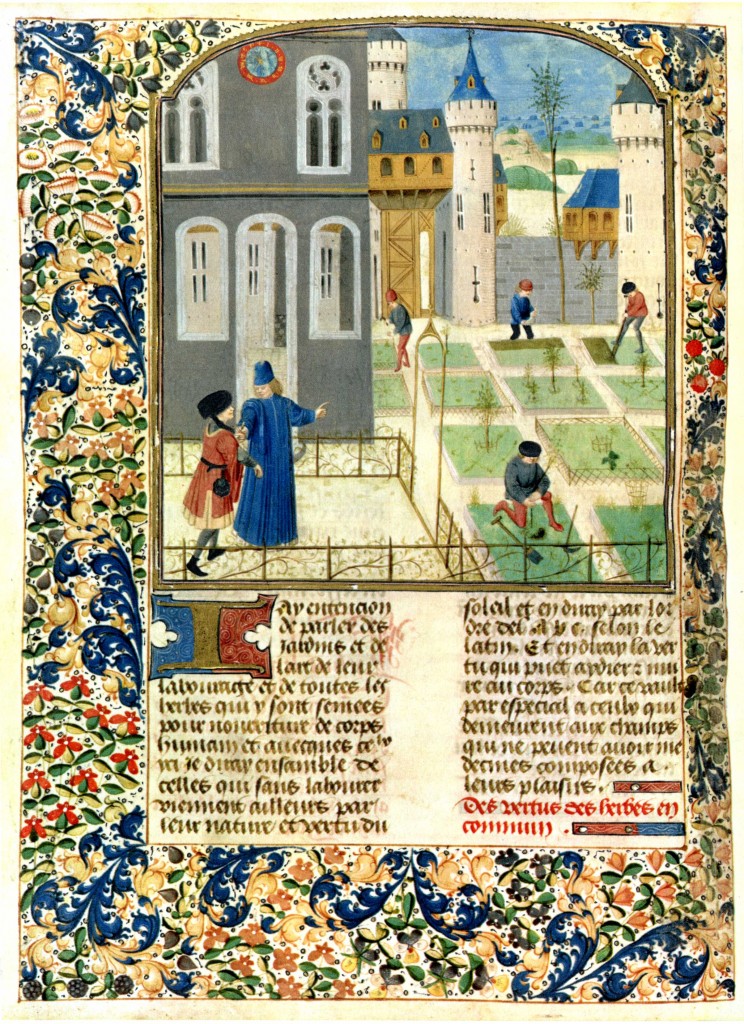 Jay entencion
de parler des
jardins et de
lart de leur
labourage et de toutes les
herbes qui y sont semees
pour nourriture de corps
humain et avecques cely
ie diray ensamble de
celles qui sans labourer
viennent ailleurs par
leur nature et vertu du
soleil et en diray par lor
dre del a b c selon le
latin. Et en diray la ver
tu qui puet aydier z nui
re au corps. Car ce vault
par especial a ceulx qui
demeurent aux champs
qui ne peuent auoir me
decines composees a
leurs plaisirs.
Des vertus des herbes en
commun.